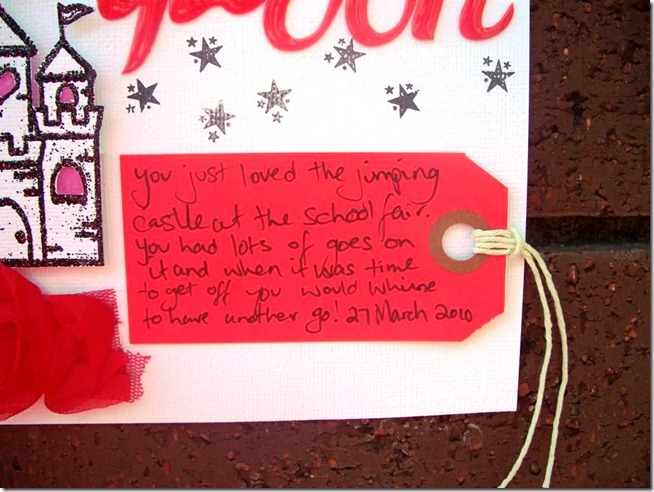 you just loved the jumping
castle at the school fair.
you had lots of goes on
it and when it was time
to get off you would whine
to have another go! 27 March 2010